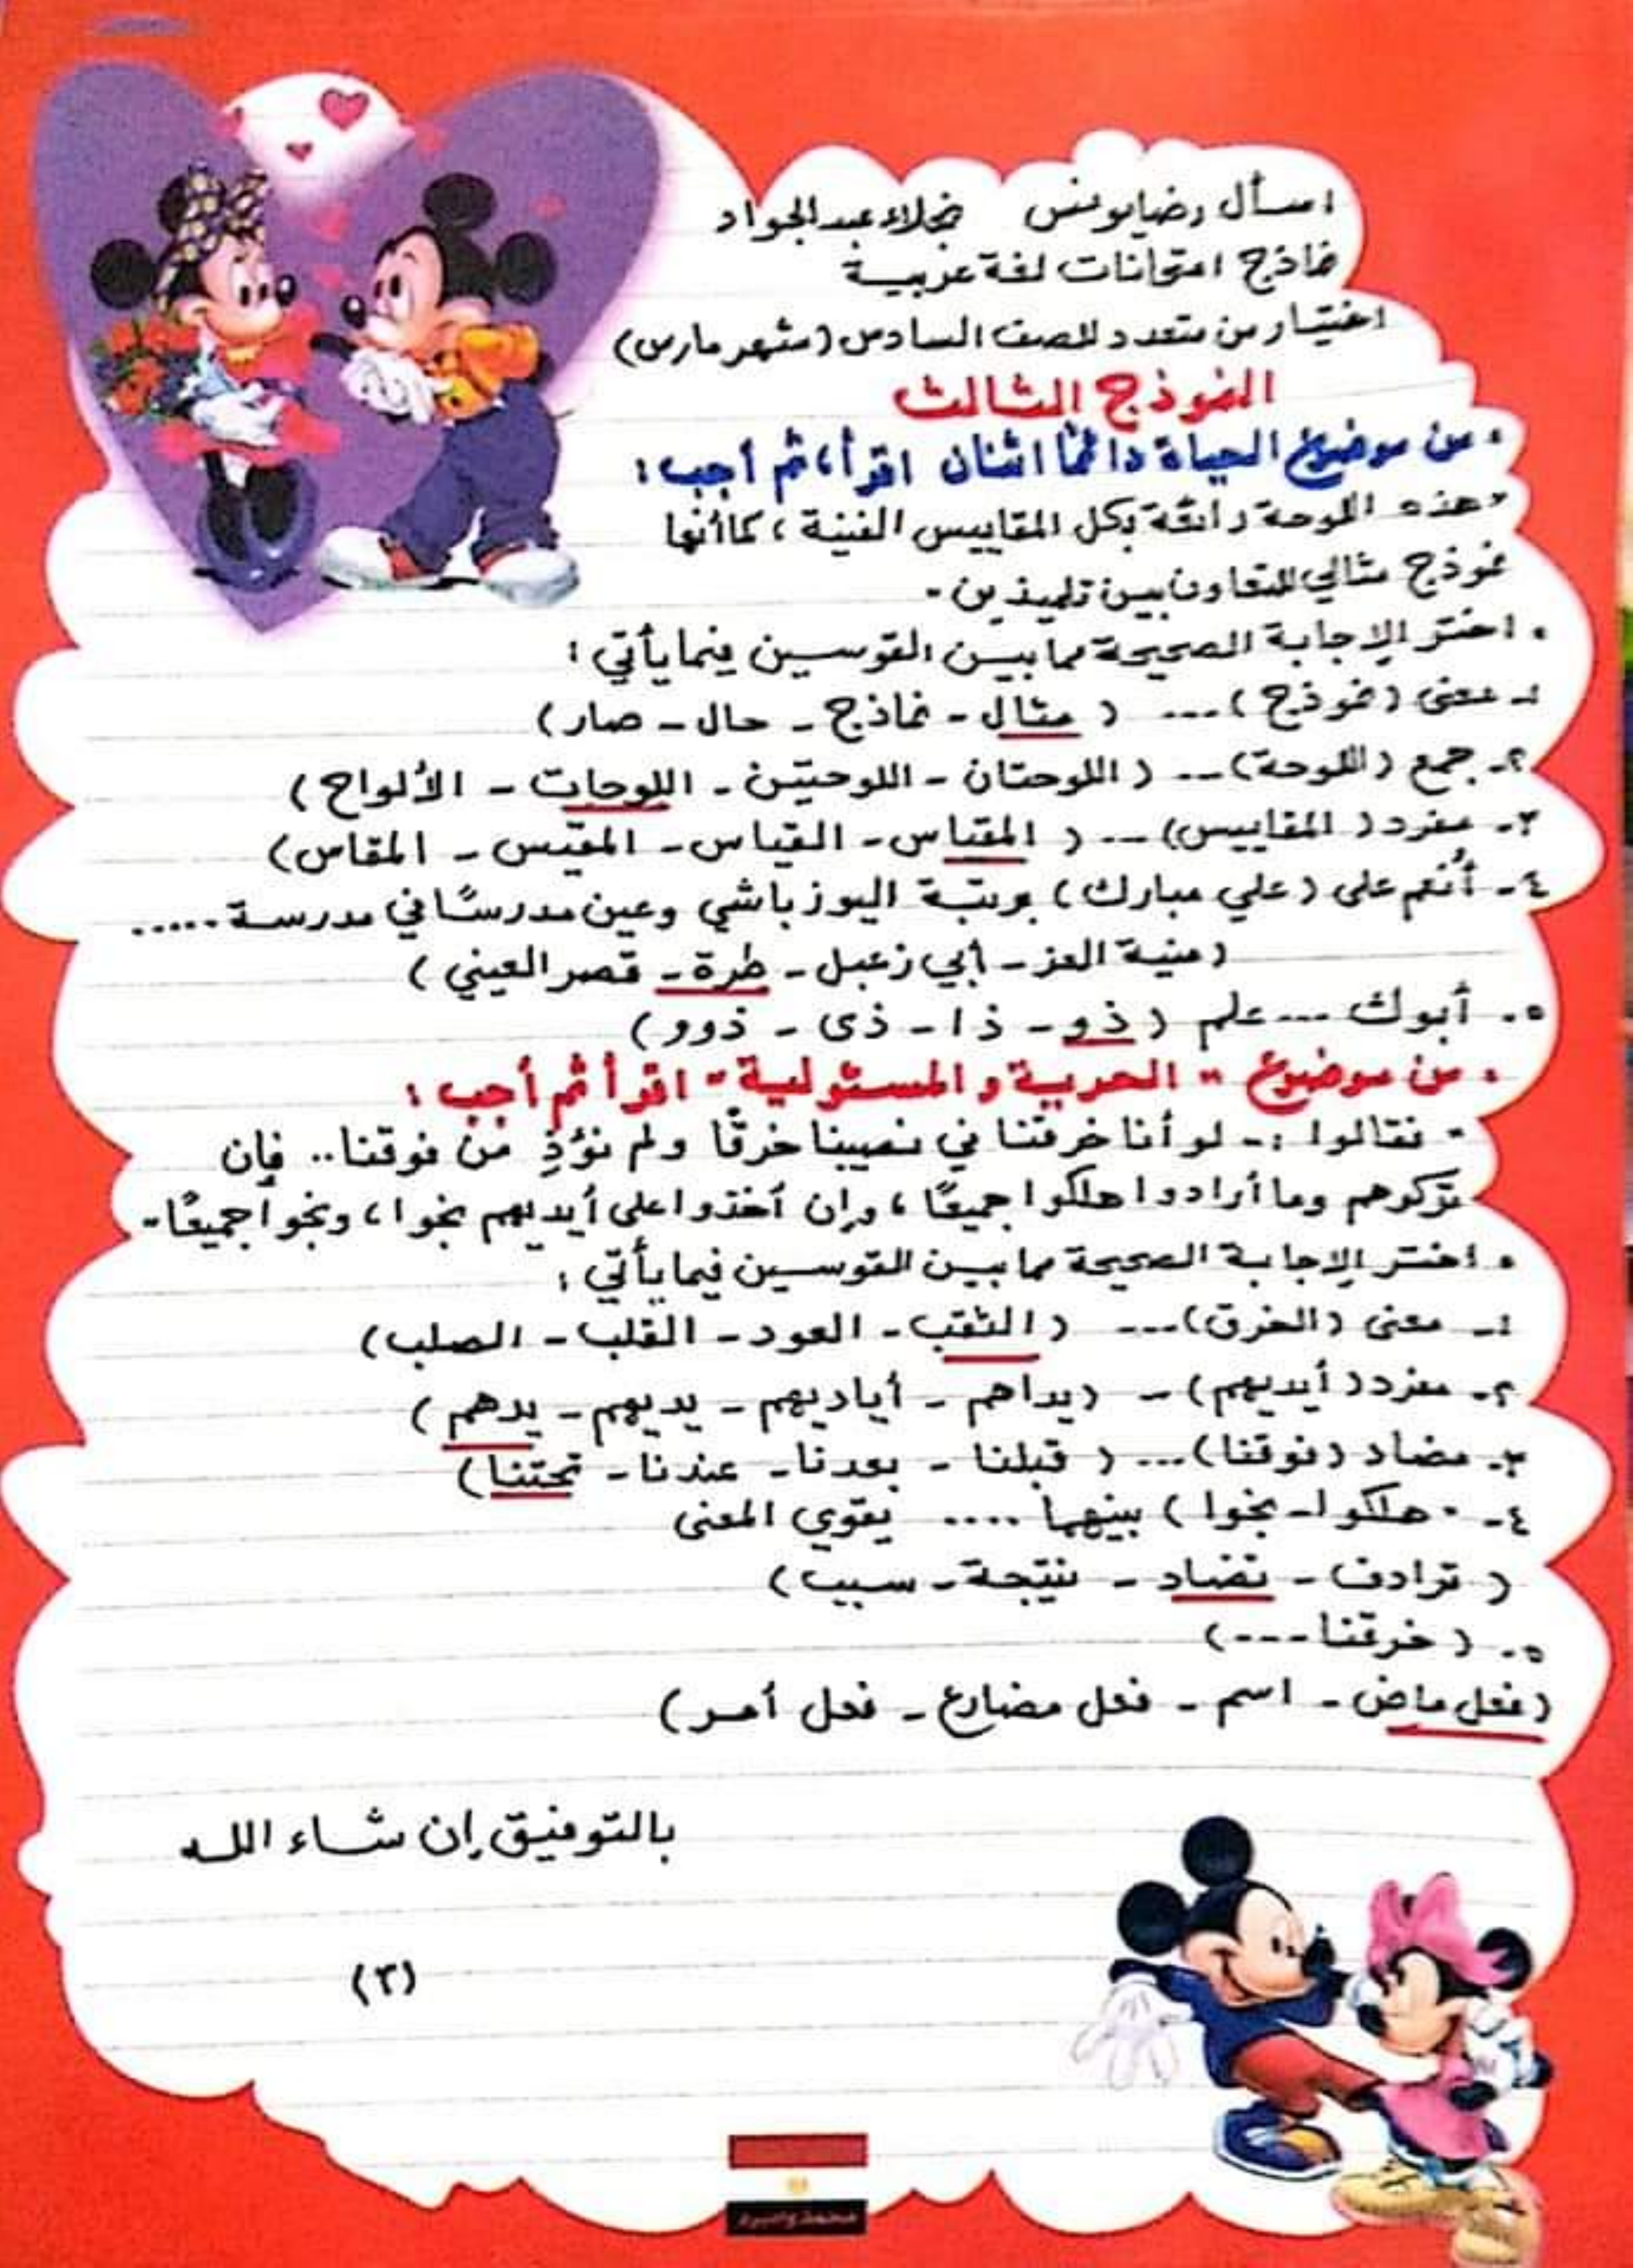 اسأل رضا يونس نجلاء عبد الجواد
نماذج امتحانات لغة عربية
اختيار من متعدد للصف السادس (شهر مارس)
النموذج الثالث
• من موضوع الحياة دائمًا اثنان اقرأ، ثم أجب:
" هذه اللوحة رائعة بكل المقاييس الفنية ، كما أنها
نموذج مثالي للتعاون بين تلميذين "
• اختر الإجابة الصحيحة مما بين القوسين فيما يأتي :
١- معنى (نموذج) ... ( مثال - نماذج - حال - صار)
٢- جمع (اللوحة) ... ( اللوحتان - اللوحتين - اللوحات - الألواح )
٣- مفرد ( المقاييس) ... ( المقياس - القياس - المقيس - المقاس)
٤- أُنعم على (علي مبارك) برتبة اليوزباشي وعين مدرسًا في مدرسة .....
(منية العز - أبي زعبل - طرة - قصر العيني )
٥- أبوك ... علم ( ذو - ذا - ذى - ذوو )
• من موضوع " الحرية والمسئولية " اقرأ ثم أجب :
" فقالوا :- لو أنا خرقنا في نصيبنا خرقًا ولم نؤذِ من فوقنا .. فإن
تركوهم وما أرادوا هلكوا جميعًا ، وإن أخذوا على أيديهم نجوا ، ونجوا جميعًا "
• اختر الإجابة الصحيحة مما بين القوسين فيما يأتي :
١- معنى (الخرق) ... ( الثقب - العود - القلب - الصلب)
٢- مفرد ( أيديهم) - (يداهم - أياديهم - يديهم - يدهم )
٣- مضاد (فوقنا) ... ( قبلنا - بعدنا - عندنا - تحتنا )
٤- " هلكوا - نجوا ) بينهما .... يقوي المعنى
( ترادف - تضاد - نتيجة - سبب )
٥- ( خرقنا ---)
(فعل ماض - اسم - فعل مضارع - فعل أمر)
بالتوفيق إن شاء الله
(٣)